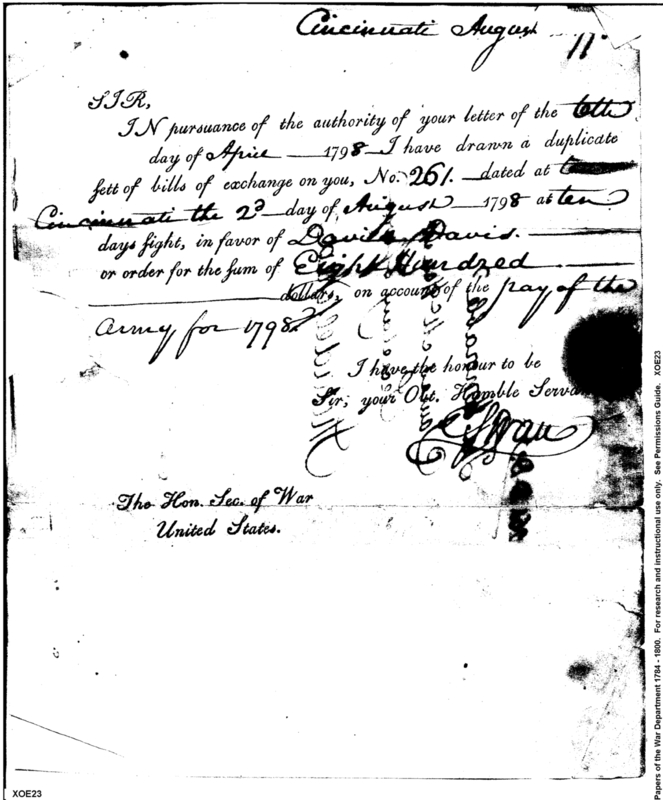 Cincinnati August 11
SIR,
IN pursuance of the authority of your letter of the
day of April 1798 I have drawn a duplicate
sett of bills of exchange on you, No. 261. dated at
Cincinnati the 2d day of August 1798 at ten
days sight, in favor of David Davis.
or order for the sum of Eight Hundred
dollars, on account of the pay of the
Army for 1798.
I have the honour to be
Sir, your Obt. Humble Servant
C Swan
The Hon. Sec. of War
United States.
XOE23
Papers of the War Department 1784 - 1800. For research and instructional use only. See Permissions Guide. XOE23